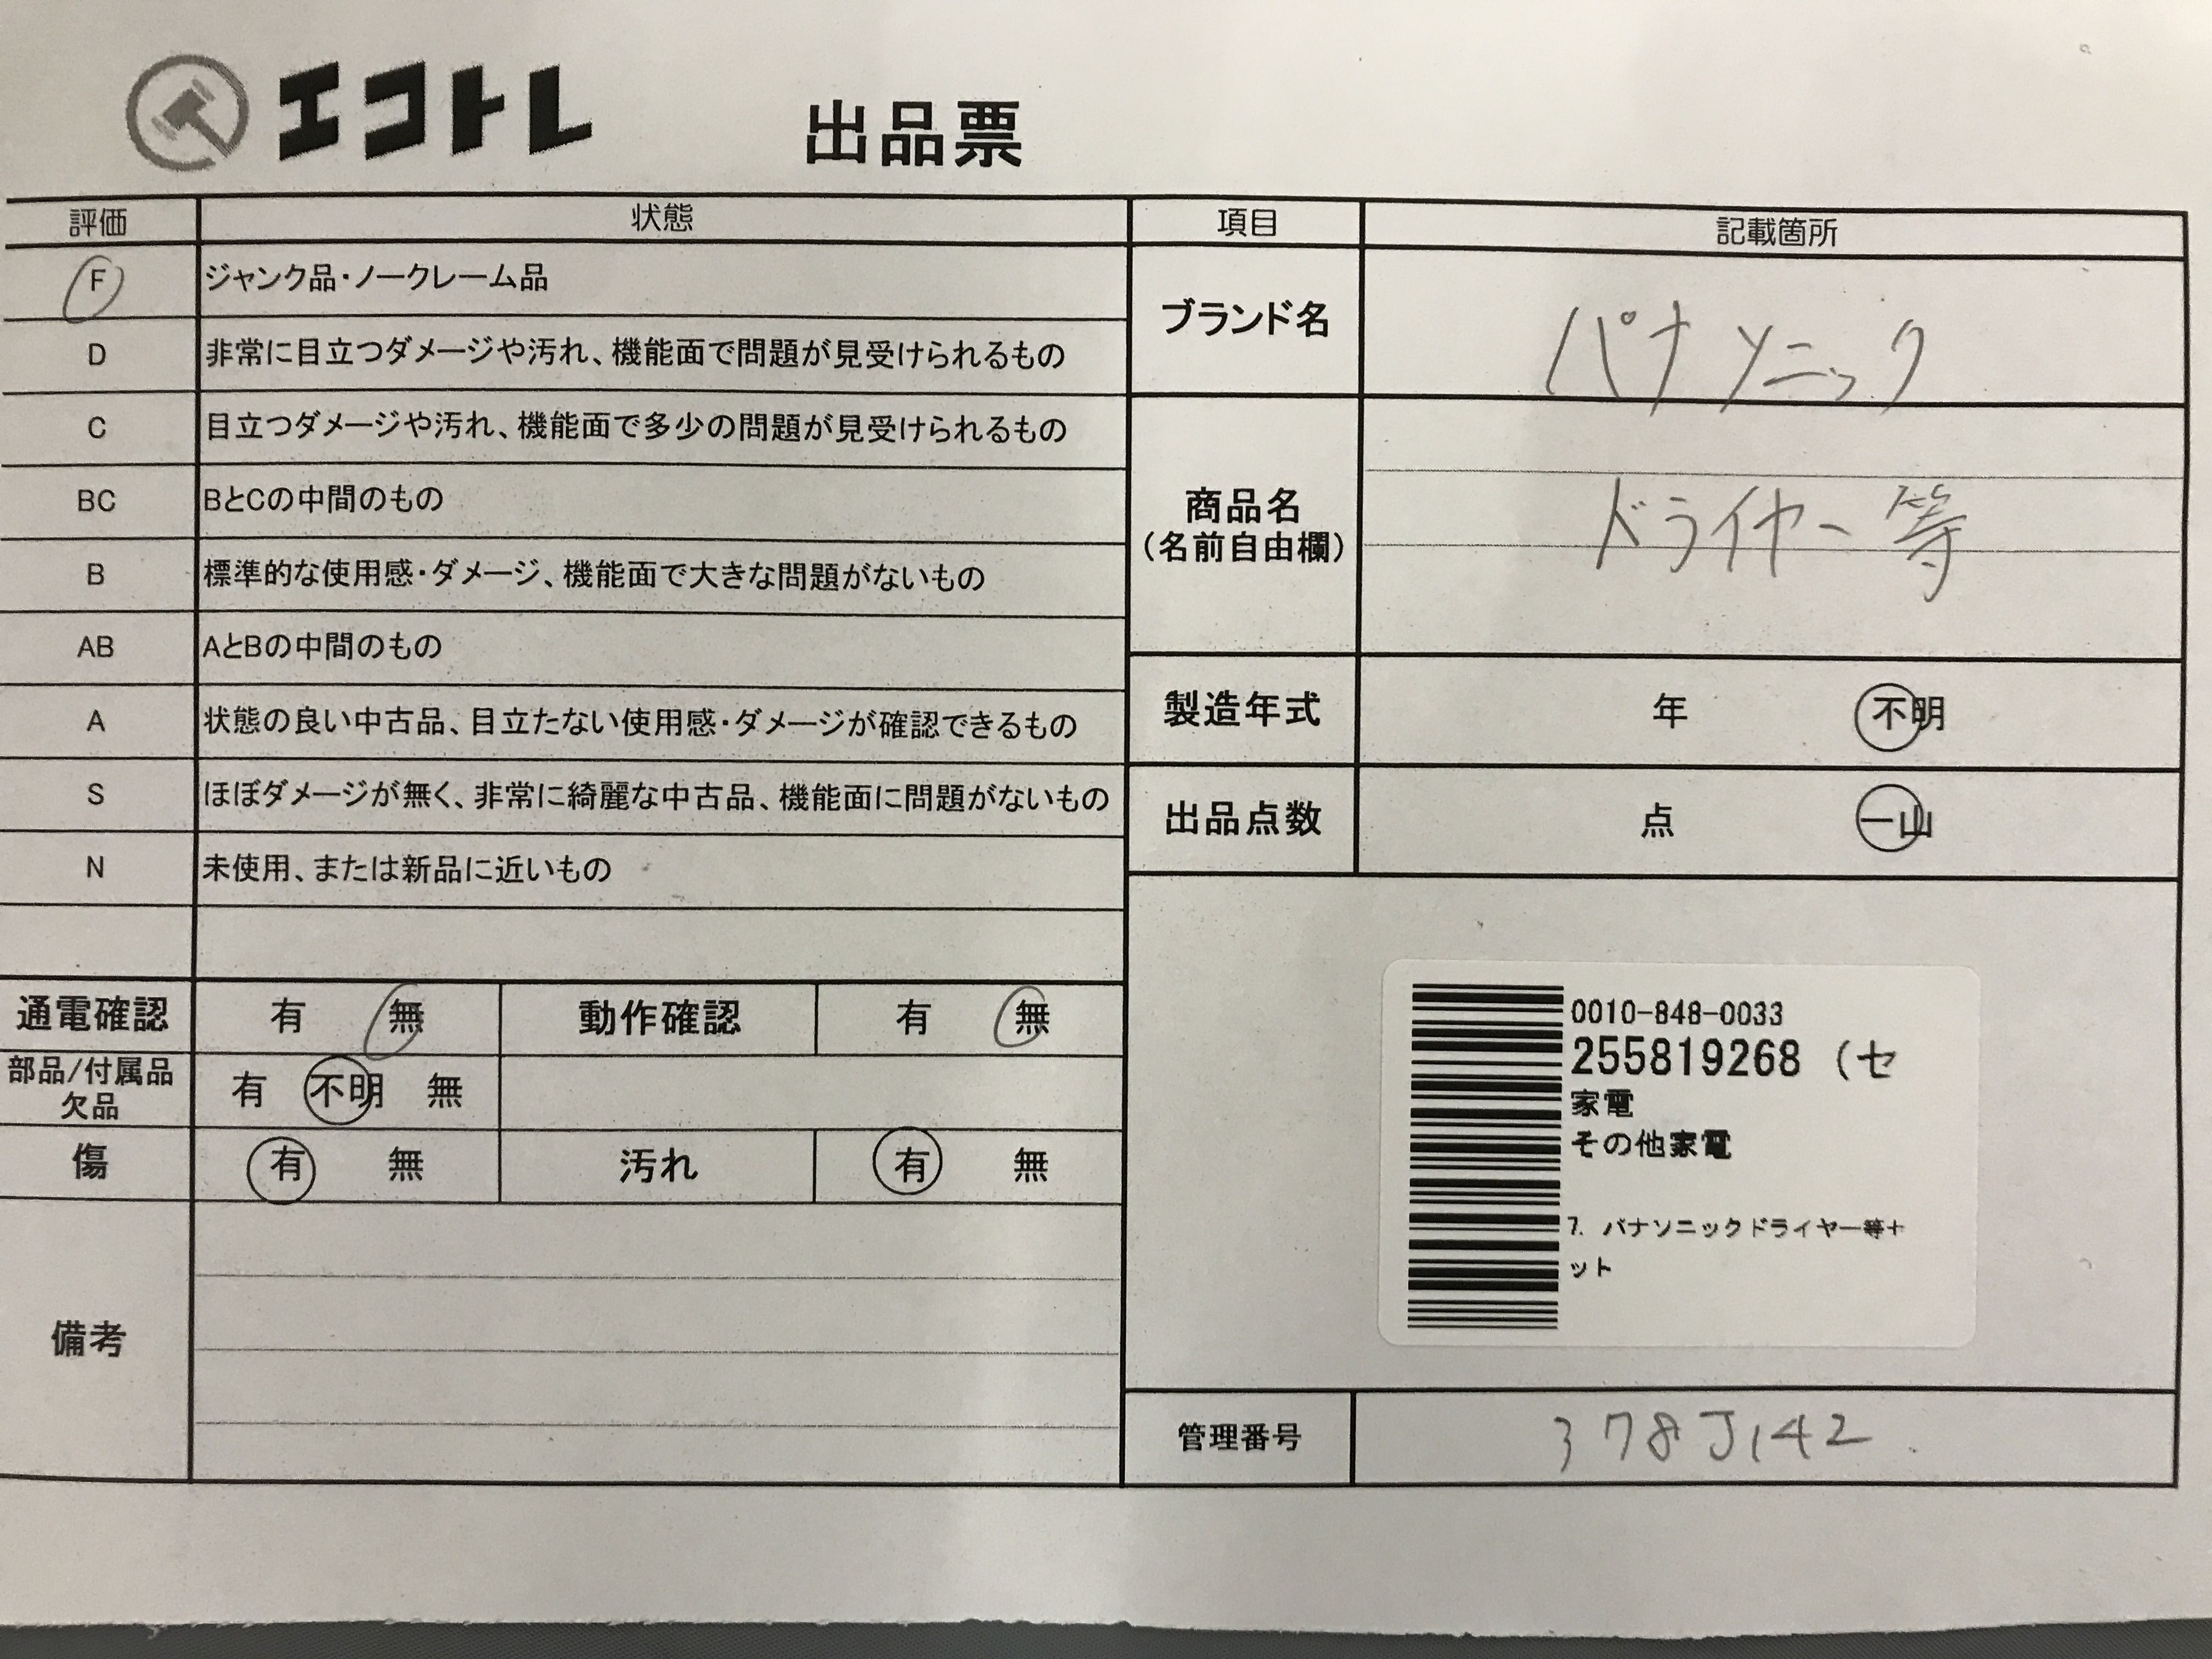 エコトレ
出品票
評価 状態
F ジャンク品・ノークレーム品
D 非常に目立つダメージや汚れ、機能面で問題が見受けられるもの
C 目立つダメージや汚れ、機能面で多少の問題が見受けられるもの
BC BとCの中間のもの
B 標準的な使用感・ダメージ、機能面で大きな問題がないもの
AB AとBの中間のもの
A 状態の良い中古品、目立たない使用感・ダメージが確認できるもの
S ほぼダメージが無く、非常に綺麗な中古品、機能面に問題がないもの
N 未使用、または新品に近いもの
通電確認 有 無 動作確認 有 無
部品/付属品
欠品 有 不明 無
傷 有 無 汚れ 有 無
備考
項目 記載箇所
ブランド名 パナソニック
商品名
(名前自由欄) ドライヤー等
製造年式 年 不明
出品点数 点 一山
0010-848-0033
255819268 (セ
家電
その他家電
7. パナソニックドライヤー等セ
ット
管理番号 378J142